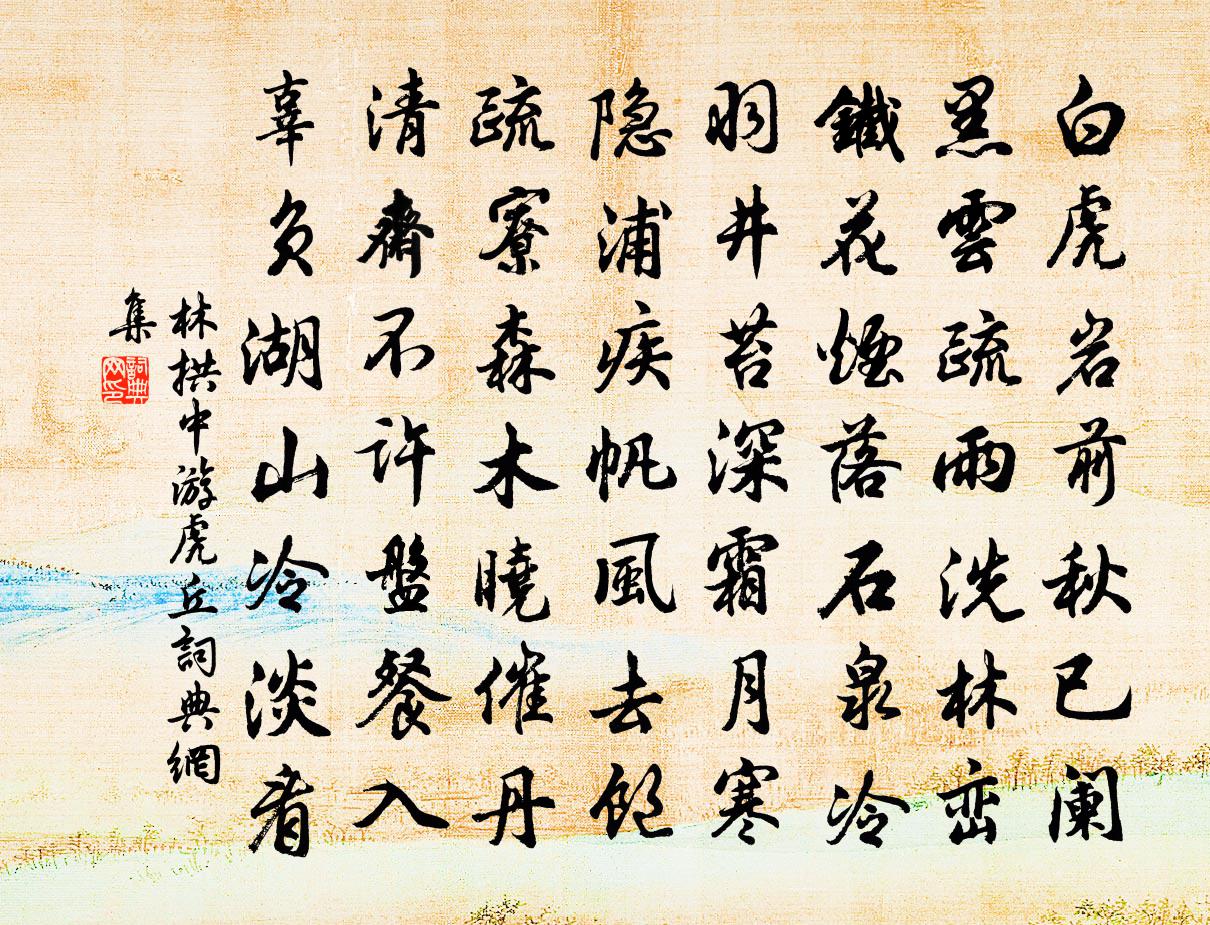 白虎岩前秋已阑
黑雲疏雨洗林峦
鐵花煙落石泉冷
羽井苔深霜月寒
隐浦疾帆風去飽
疏寮森木曉催丹
清齋不許盤餐入
辜负湖山冷淡看
林拱中游虎丘詞典網
集
詞典网印